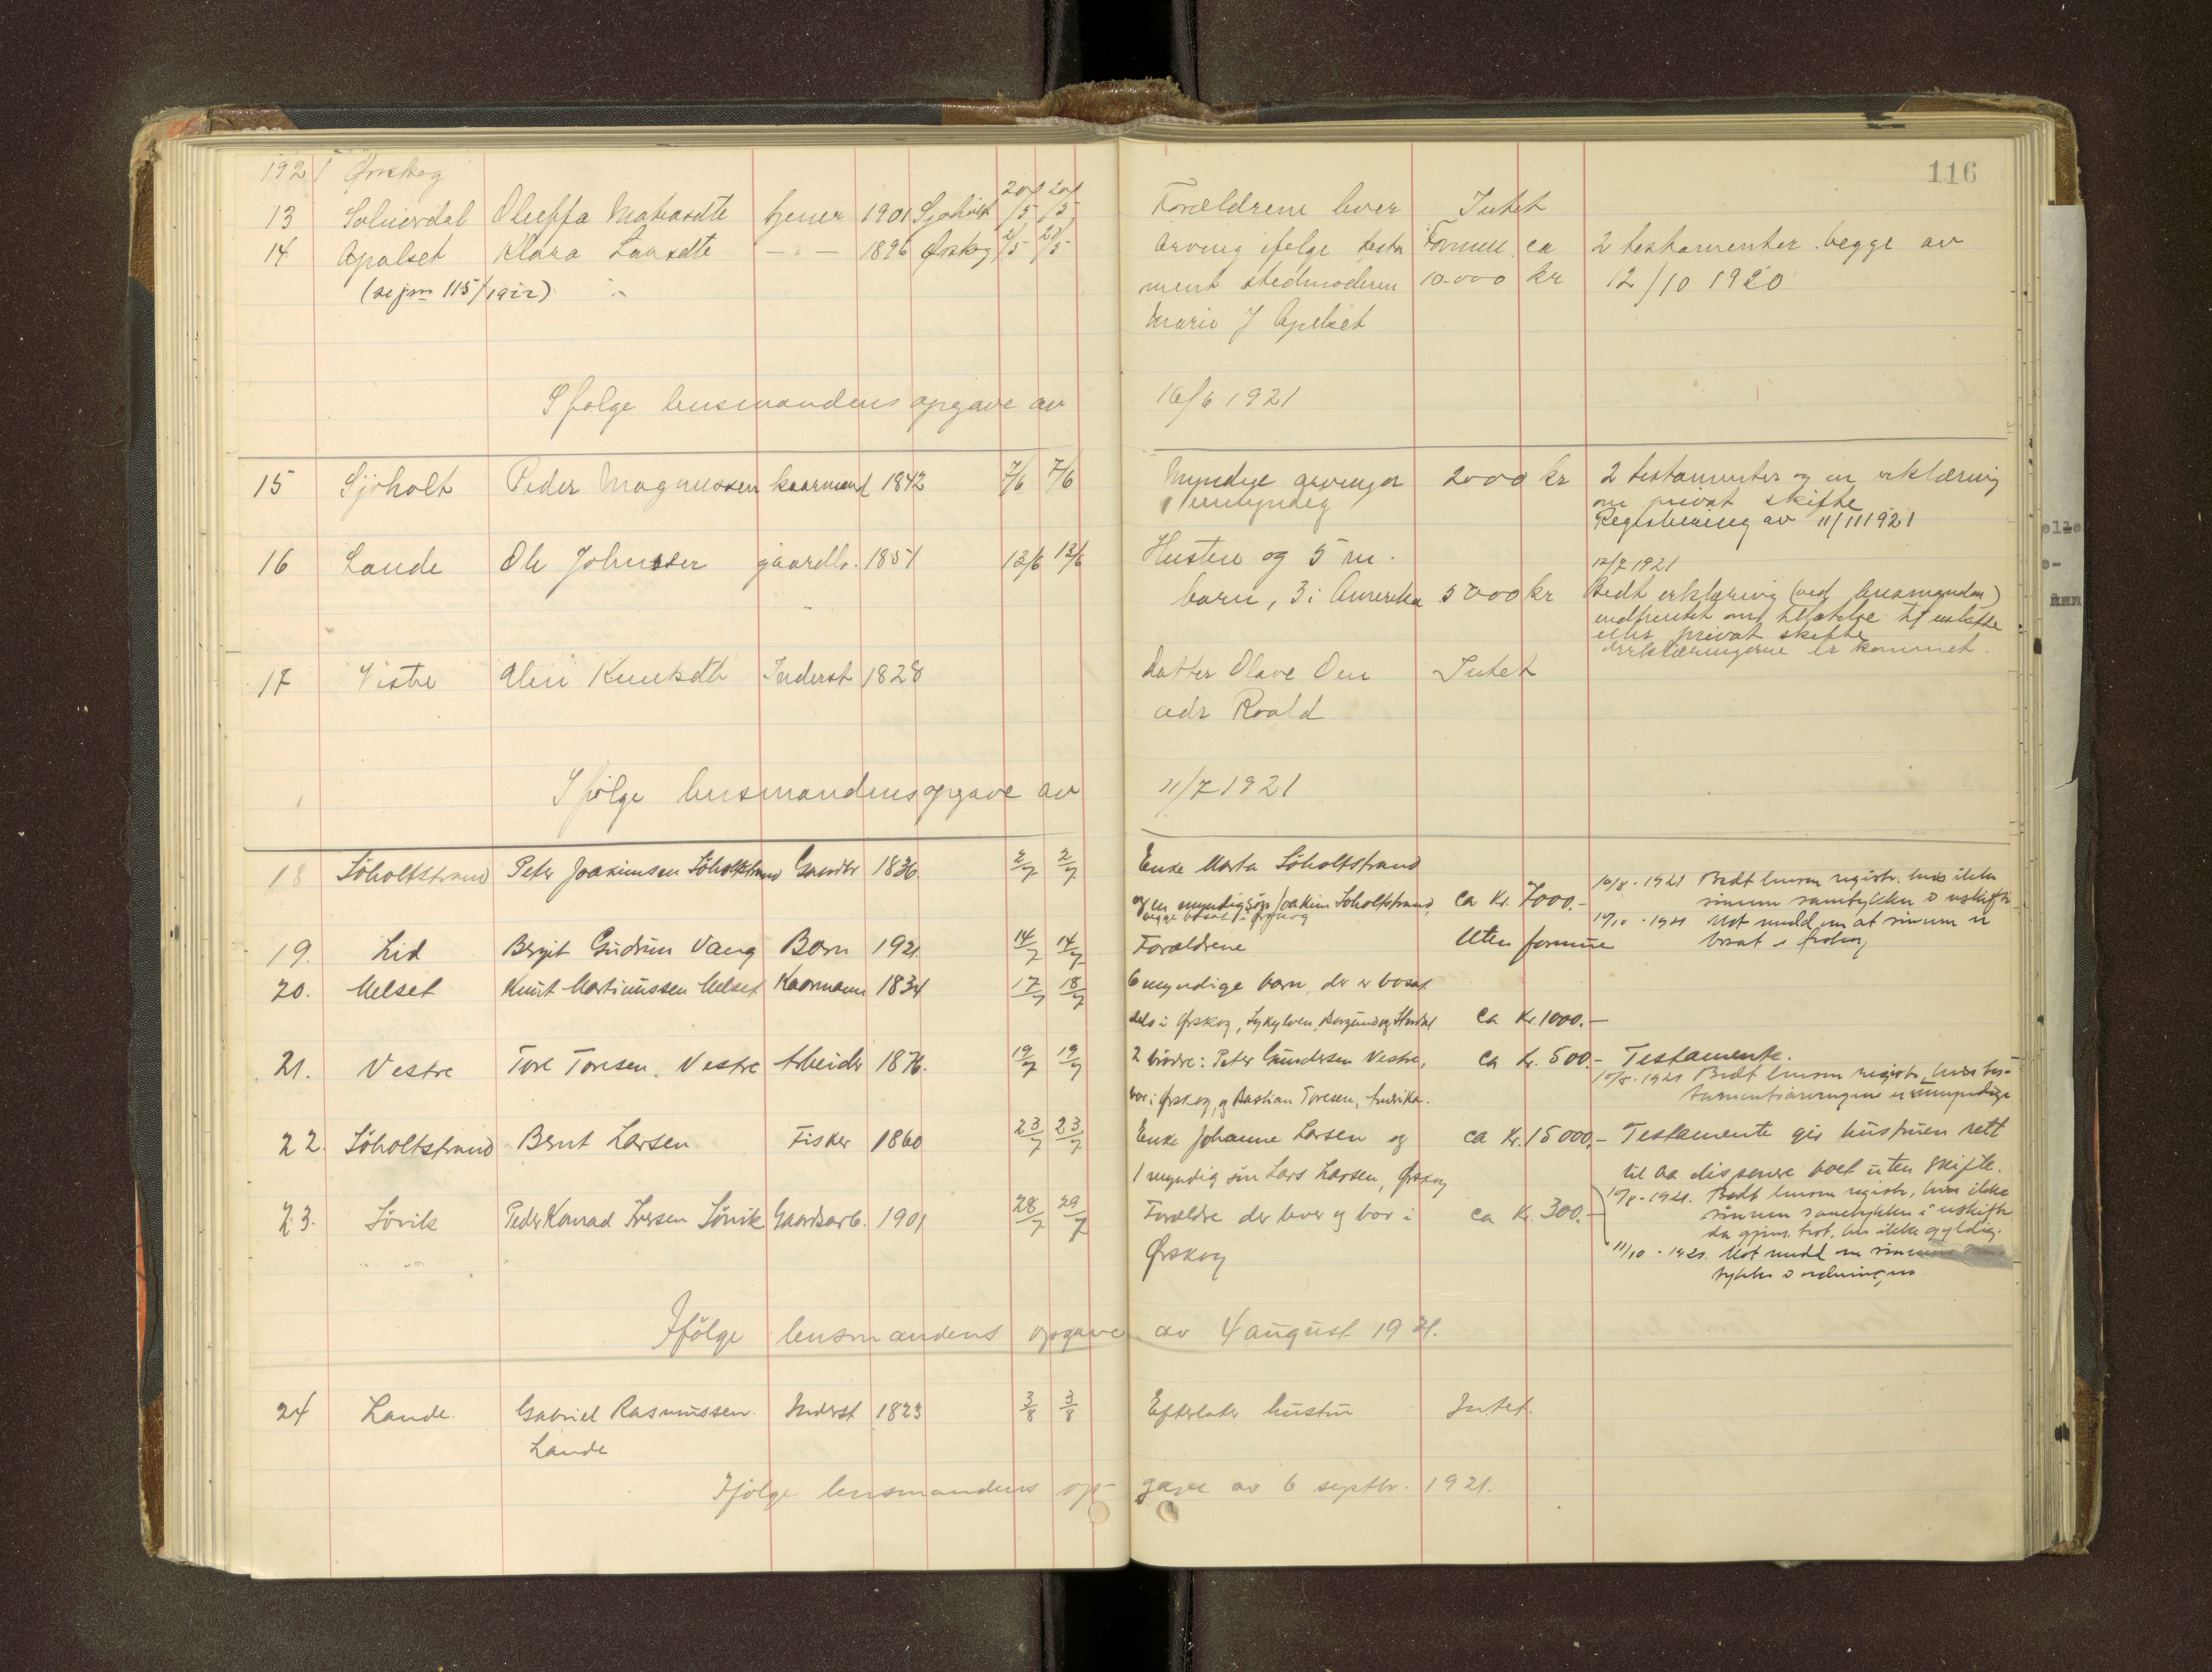 116
1921 Ørskog
13 Solnørdal Oleffa Matiasdtr tjener 1901 Sjøholt 20/5 20/5 Forældrene lever Intet
14 Apalset Klara Larsdtr — " — 1896 Ørskog /5 /5 Arving ifølge testa Formue ca 2 testamenter begge av
(se jrn 115/1922) ment stedmoderen 10.000 kr 12/10 1920
Marie J Apelset
Ifølge lensmandens opgave av 16/6 1921
15 Sjøholt Peder Magnussen kaarmand 1842 7/6 7/6 Myndige arvinger 2000 kr 2 testamenter og en erklæring
1 umyndig om privat skifte
Registrering av 11/11 1921
16 Lande Ole Johnsen gaardbr. 1851 12/6 12/6 Hustru og 5 m. 12/7 1921
barn, 3 i Amerika 5000 kr Bedt erklæring (ved lensmanden)
indhentet om tilladelse til uskifte
eller privat skifte
Erklæringerne er kommet.
17 Vistre Knutsdtr Inderst 1828 Datter Olave Oen Intet
adr Roald
Ifølge lensmandens opgave av 11/7 1921
18 Söholtstrand Peter Joakimsen Söholtstrand Gaardbr 1836. 2/7 2/7 Enke Marta Söholtstrand
og en myndig sön Joakim Söholtstrand, ca Kr. 7000.- 10/8 - 1921 Bedt lensm registr. hvis ikke
begge bosat i Ørskog sönnen samtykker i uskifte
19. Lid Bergit Gudrun Vaeng Barn 1921. 14/7 14/7 Forældrene Uten formue 10/10 - 1921 Mot medd. om at sönnen er
bosat i
20. Melset Knut Martinussen Melset Kaarmann 1834 17/7 18/7 6 myndige barn, der er bosat
dels i Ørskog, Sykylven, Borgund og Stordal ca Kr. 1000.-
21. Vestre Tore Toresen Vestre Arbeider 1876. 19/7 19/7 2 brödre: Peter Gundersen Vestre, ca Kr. 500.- Testamente.
bor i Ørskog, og Bastian Toresen, Amerika. 10/8 - 1921 Bedt lensm registr, hvis tes-
tamentsarvingene er umyndige
22. Söholtstrand Bernt Larsen Fisker 1860 23/7 23/7 Enke Johanne Larsen og ca Kr. 15000.- Testamente gir hustruen rett
1 myndig sön Lars Larsen, Ørskog til aa disponere boet uten skifte.
10/8 - 1921. Bedt lensm registr, hvis ikke
23. Sövik Peder Konrad Iversen Sövik Gaardsarb. 1901 28/7 29/7 Forældre der lever og bor i ca Kr. 300.- sönnen samtykker i uskifte
Ørskog da gjens. test. er ikke gyldig.
11/10 - 1921. Mot medd om sönnens
tykke i ordningen
Ifölge lensmandens opgave av 4 august 1921.
24 Lande. Gabriel Rasmussen Inderst 1823 3/8 3/8 Efterlater hustru Intet.
Lande
Ifölge lensmandens op- gave av 6 septbr. 1921.